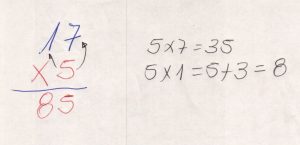 17
x5
85
5x7=35
5x1=5+3=8